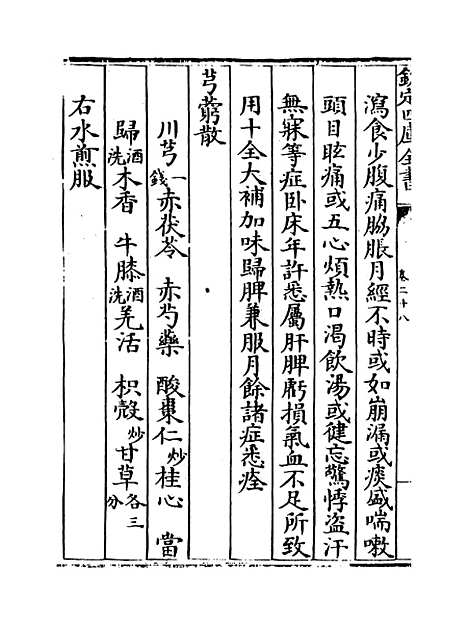 欽定四庫全書
卷二十八
瀉食少腹痛脇脹月經不時或如崩漏或痰盛喘嗽
頭目眩痛或五心煩熱口渴飲湯或健忘驚悸盜汗
無寐等症卧床年許悉屬肝脾虧損氣血不足所致
用十全大補加味歸脾兼服月餘諸症悉痊
芎藭散
川芎一錢 赤茯苓 赤芍藥 酸棗仁炒 桂心 當
歸酒洗 木香 牛膝酒洗 羌活 枳殼炒 甘草各三分
右水煎服